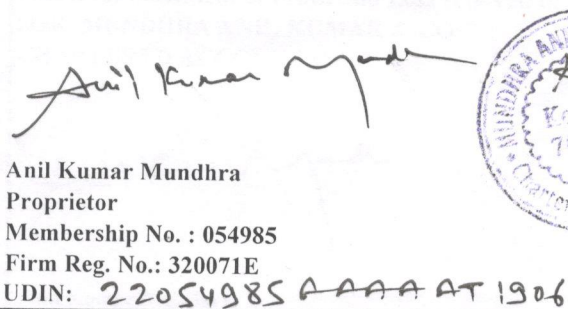 Anil Kumar Mundhra
Anil Kumar Mundhra
Proprietor
Membership No. : 054985
Firm Reg. No.: 320071E
UDIN: 22054985AAAAAT1906
MUNDHRA ANI